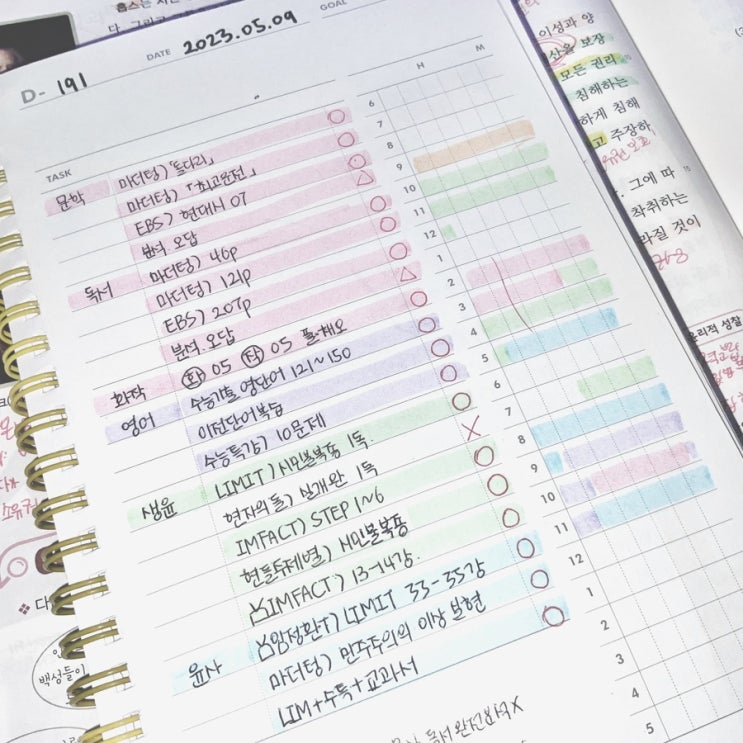 D- 191
DATE 2023.05.09
GOAL
TASK
H M
문학 마더텅) 「들다리」
마더텅) 「최고운전」
EBS) 현대시 07
분석 오답
독서 마더텅) 46p
마더텅) 121p
EBS) 207p
분석 오답
화작 화 05 작 05 풀+채+오
영어 수능기출 영단어 121~150
이전단어복습
수능특강) 10문제
생윤 LIMIT) 시민불복종 1독.
현자의돌) 실개완 1독
IMFACT) STEP 1~6
현돌주제별) 시민불복종
IMFACT) 13-14강.
윤사 임정환T) LIMIT 33-35강
마더텅) 민주주의의 이상 실현
LIM+수특+교과서
독서 완전분석 X
6
7
8
9
10
11
12
1
2
3
4
5
6
7
8
9
10
11
12
1
2
3
4
5
이성과 양
산을 보장
모든 권리
침해하는
하게 침해
고 주장하
그에 따
착취하는
라질 것이
윤리적 성찰
백성들이